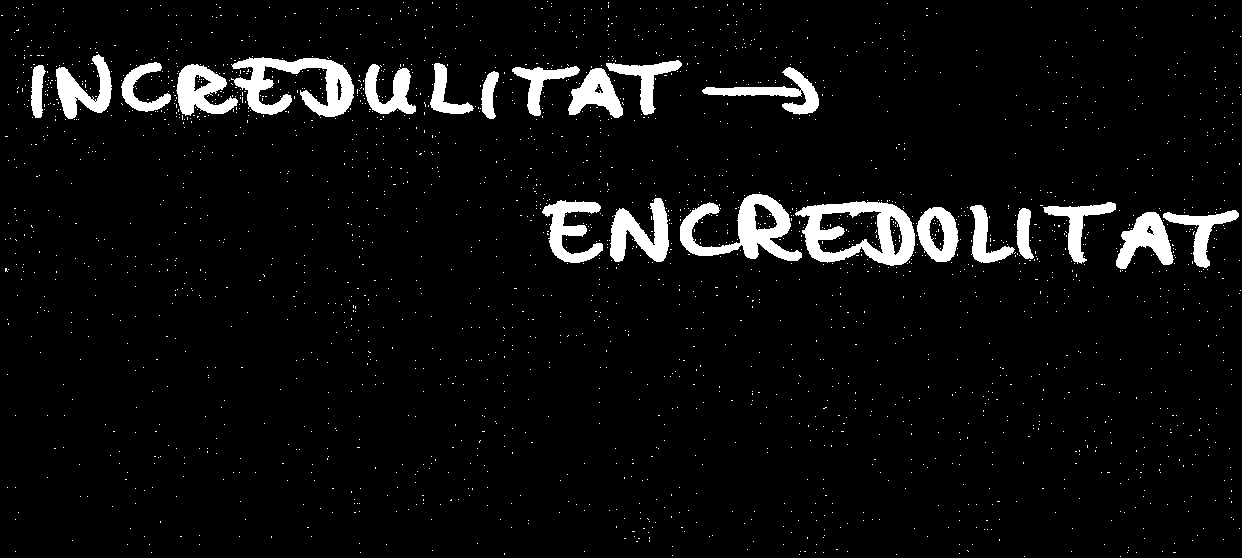 INCREDULITAT →
ENCREDOLITAT